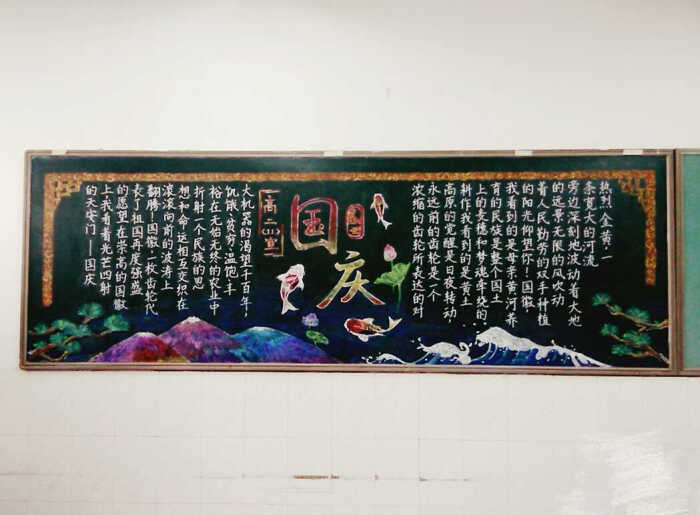 热烈、金黄、一
条宽大的河流
旁边深刻地波动着大地
的远景无限的风吹动
着人民勤劳的双手种植
的阳光仰望你！国徽，
我看到的是母亲黄河养
育的民族是整个国土
上的麦穗和梦魂牵绕的
耕作我看到的是黄土
高原的觉醒是日夜转动，
永远向前的齿轮是一个
浓缩的齿轮所表达的对
国庆
高二
大机器的渴望一千百年！
饥饿、贫穷、温饱、丰
裕在无始无终的农业中
折射一个民族的思
想和命运相互交织在
滚滚向前的波涛上
翻腾！国徽一枚齿轮代
表了祖国再度强盛
的愿望在崇高的国徽
上我看着光芒四射
的天安门——国庆